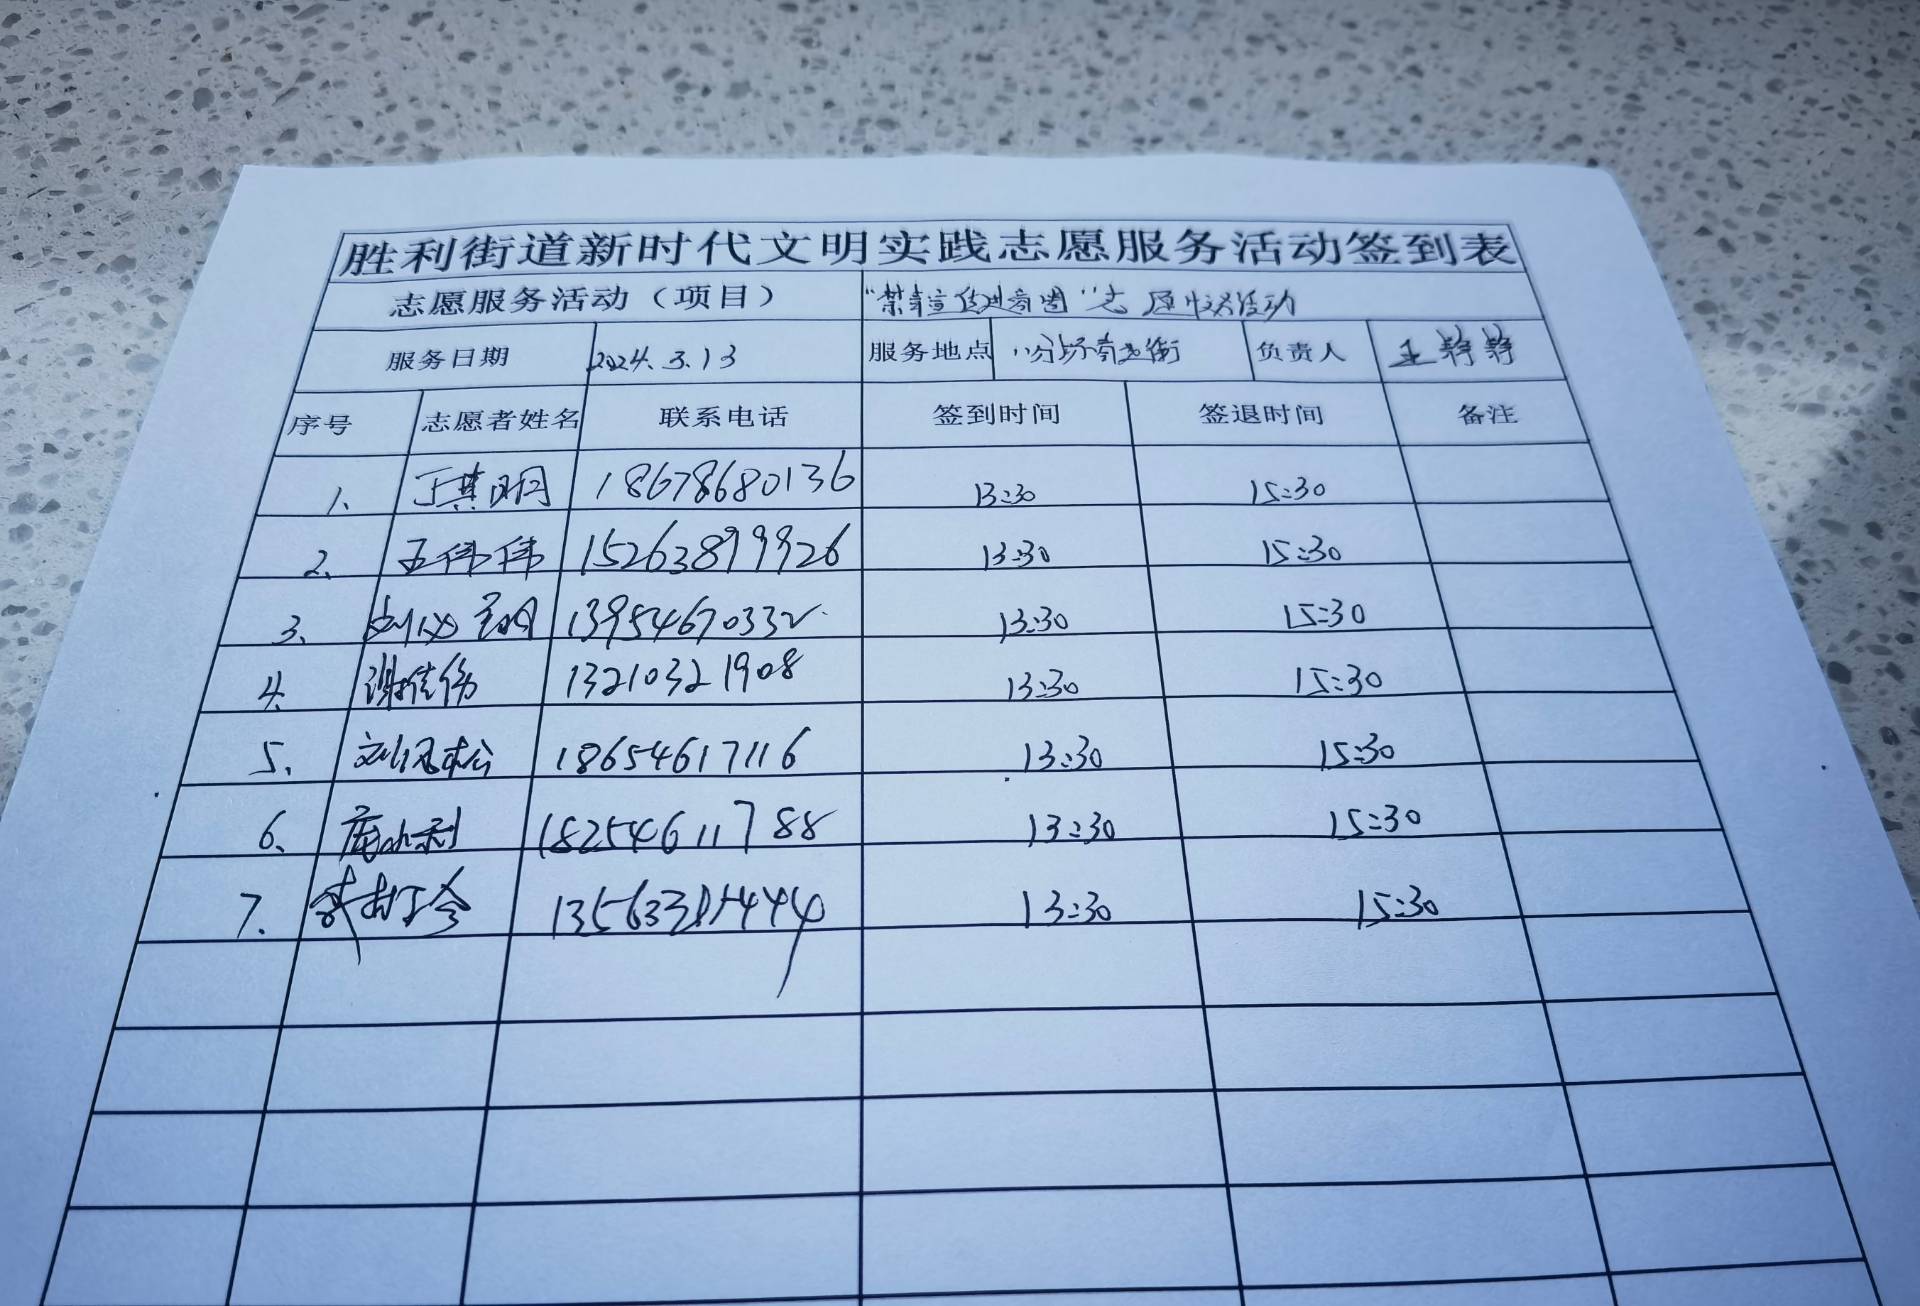 胜利街道新时代文明实践志愿服务活动签到表
志愿服务活动（项目） “禁毒宣传进商圈”志愿服务活动
服务日期 2024.3.13 服务地点 负责人 王静静
序号 志愿者姓名 联系电话 签到时间 签退时间 备注
1、 丁其明 18678680136 13:30 15:30
2、 王伟伟 15263899926 13:30 15:30
3、 13954670332 13:30 15:30
4、 谢佳伤 13210321908 13:30 15:30
5、 刘凤松 18654617116 13:30 15:30
6、 庞水利 18254611788 13:30 15:30
7. 13:30 15:30